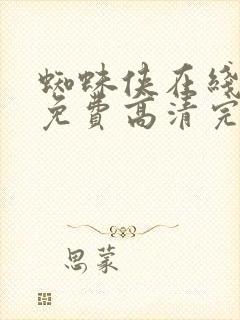 蜘蛛侠在线
免費高清完
思蒙